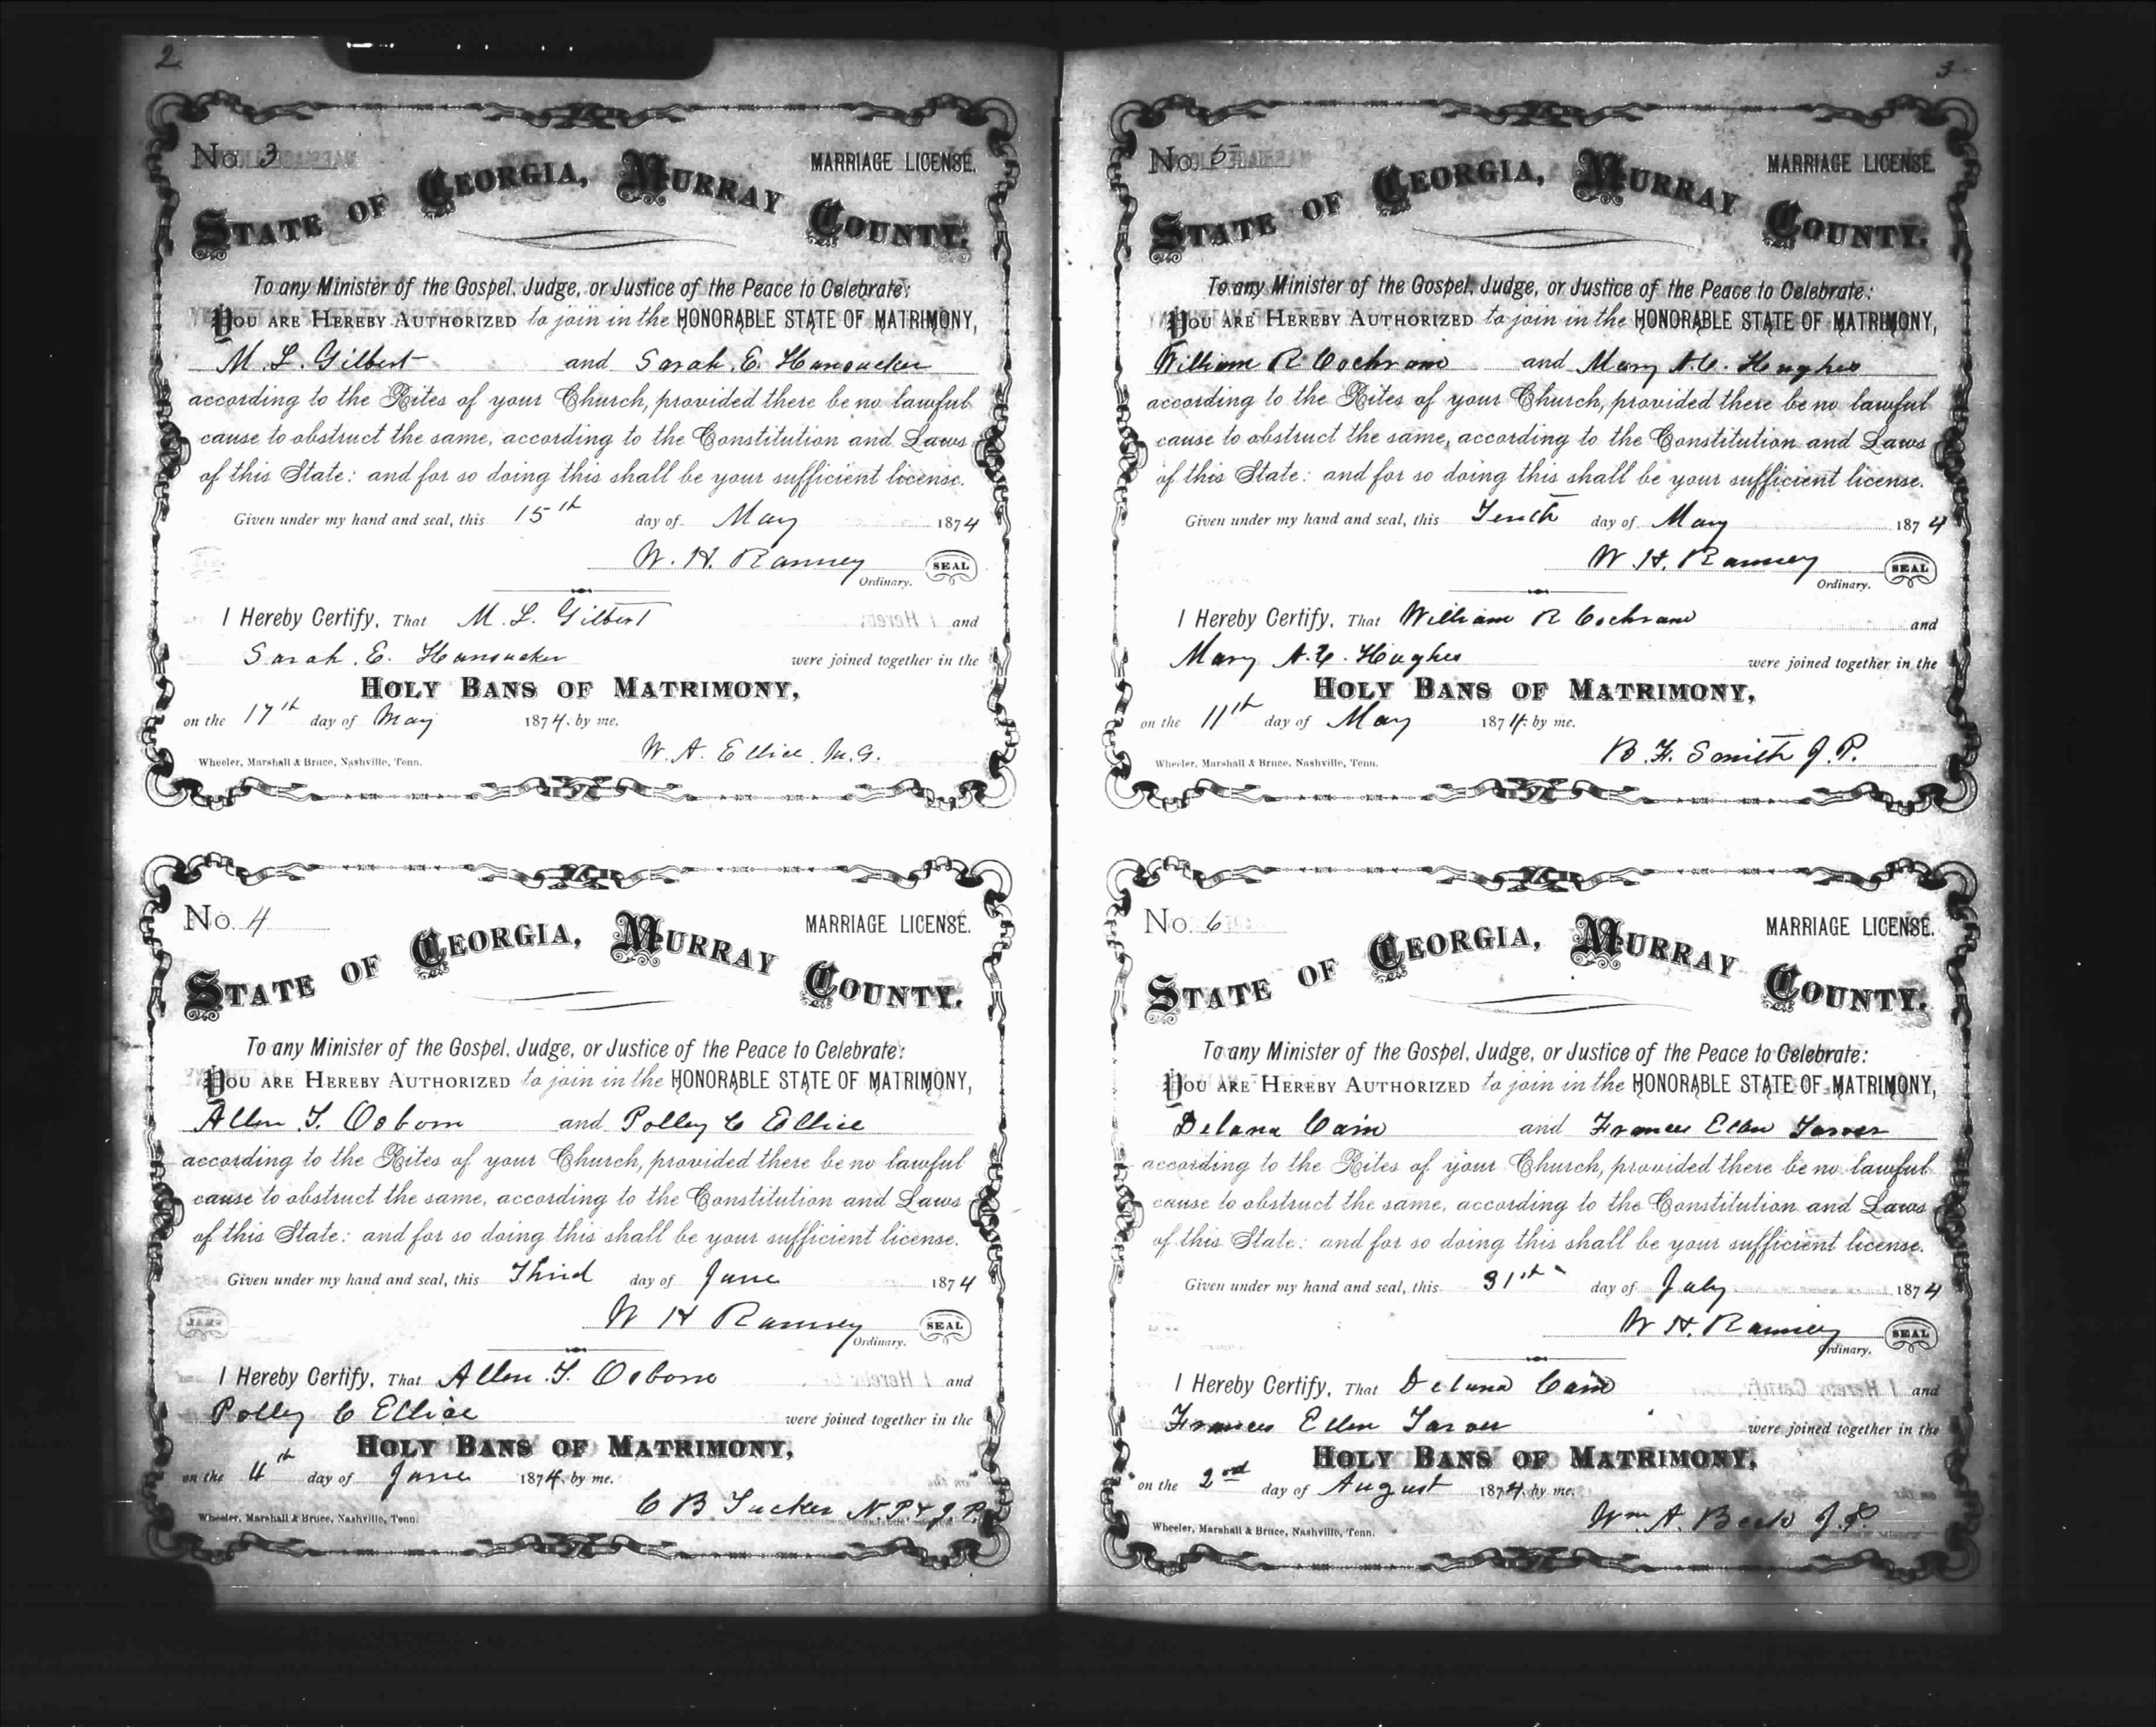 2
No. 3
MARRIAGE LICENSE.
STATE OF GEORGIA, MURRAY COUNTY.
To any Minister of the Gospel, Judge, or Justice of the Peace to Celebrate:
YOU ARE HEREBY AUTHORIZED to join in the HONORABLE STATE OF MATRIMONY,
M. L. Gilbert and Sarah E. Hunsucker
according to the Rites of your Church, provided there be no lawful
cause to obstruct the same, according to the Constitution and Laws
of this State: and for so doing this shall be your sufficient license.
Given under my hand and seal, this 15th day of May 1874
W. H. Ramsey SEAL
Ordinary.
I Hereby Certify, That M. L. Gilbert and
Sarah. E. Hunsucker were joined together in the
HOLY BANS OF MATRIMONY,
on the 17th day of May 1874. by me.
W. A. Ellice. M. G.
Wheeler, Marshall & Bruce, Nashville, Tenn.
No. 4
MARRIAGE LICENSE.
STATE OF GEORGIA, MURRAY COUNTY.
To any Minister of the Gospel, Judge, or Justice of the Peace to Celebrate:
YOU ARE HEREBY AUTHORIZED to join in the HONORABLE STATE OF MATRIMONY,
Allen T. Osborn and Polley C Ellice
according to the Rites of your Church, provided there be no lawful
cause to obstruct the same, according to the Constitution and Laws
of this State: and for so doing this shall be your sufficient license.
Given under my hand and seal, this Third day of June 1874
W H Ramsey SEAL
Ordinary.
I Hereby Certify, That Allen T. Osborn and
Polley C Ellice were joined together in the
HOLY BANS OF MATRIMONY,
on the 4th day of June 1874. by me.
C B Tucker N. P. & J. P.
Wheeler, Marshall & Bruce, Nashville, Tenn.
3
No. 5
MARRIAGE LICENSE.
STATE OF GEORGIA, MURRAY COUNTY.
To any Minister of the Gospel, Judge, or Justice of the Peace to Celebrate:
YOU ARE HEREBY AUTHORIZED to join in the HONORABLE STATE OF MATRIMONY,
William R Cochran and Mary A. C. Hughes
according to the Rites of your Church, provided there be no lawful
cause to obstruct the same, according to the Constitution and Laws
of this State: and for so doing this shall be your sufficient license.
Given under my hand and seal, this Tenth day of May 1874
W. H. Ramsey SEAL
Ordinary.
I Hereby Certify, That William R Cochran and
Mary A. C. Hughes were joined together in the
HOLY BANS OF MATRIMONY,
on the 11th day of May 1874. by me.
B. F. Smith J. P.
Wheeler, Marshall & Bruce, Nashville, Tenn.
No. 6
MARRIAGE LICENSE.
STATE OF GEORGIA, MURRAY COUNTY.
To any Minister of the Gospel, Judge, or Justice of the Peace to Celebrate:
YOU ARE HEREBY AUTHORIZED to join in the HONORABLE STATE OF MATRIMONY,
Delana Cain and Frances Ellen Tarver
according to the Rites of your Church, provided there be no lawful
cause to obstruct the same, according to the Constitution and Laws
of this State: and for so doing this shall be your sufficient license.
Given under my hand and seal, this 31th day of July 1874
W. H. Ramsey SEAL
Ordinary.
I Hereby Certify, That Delana Cain and
Frances Ellen Tarver were joined together in the
HOLY BANS OF MATRIMONY,
on the 2nd day of August 1874. by me.
Wm. A. Beck J. P.
Wheeler, Marshall & Bruce, Nashville, Tenn.